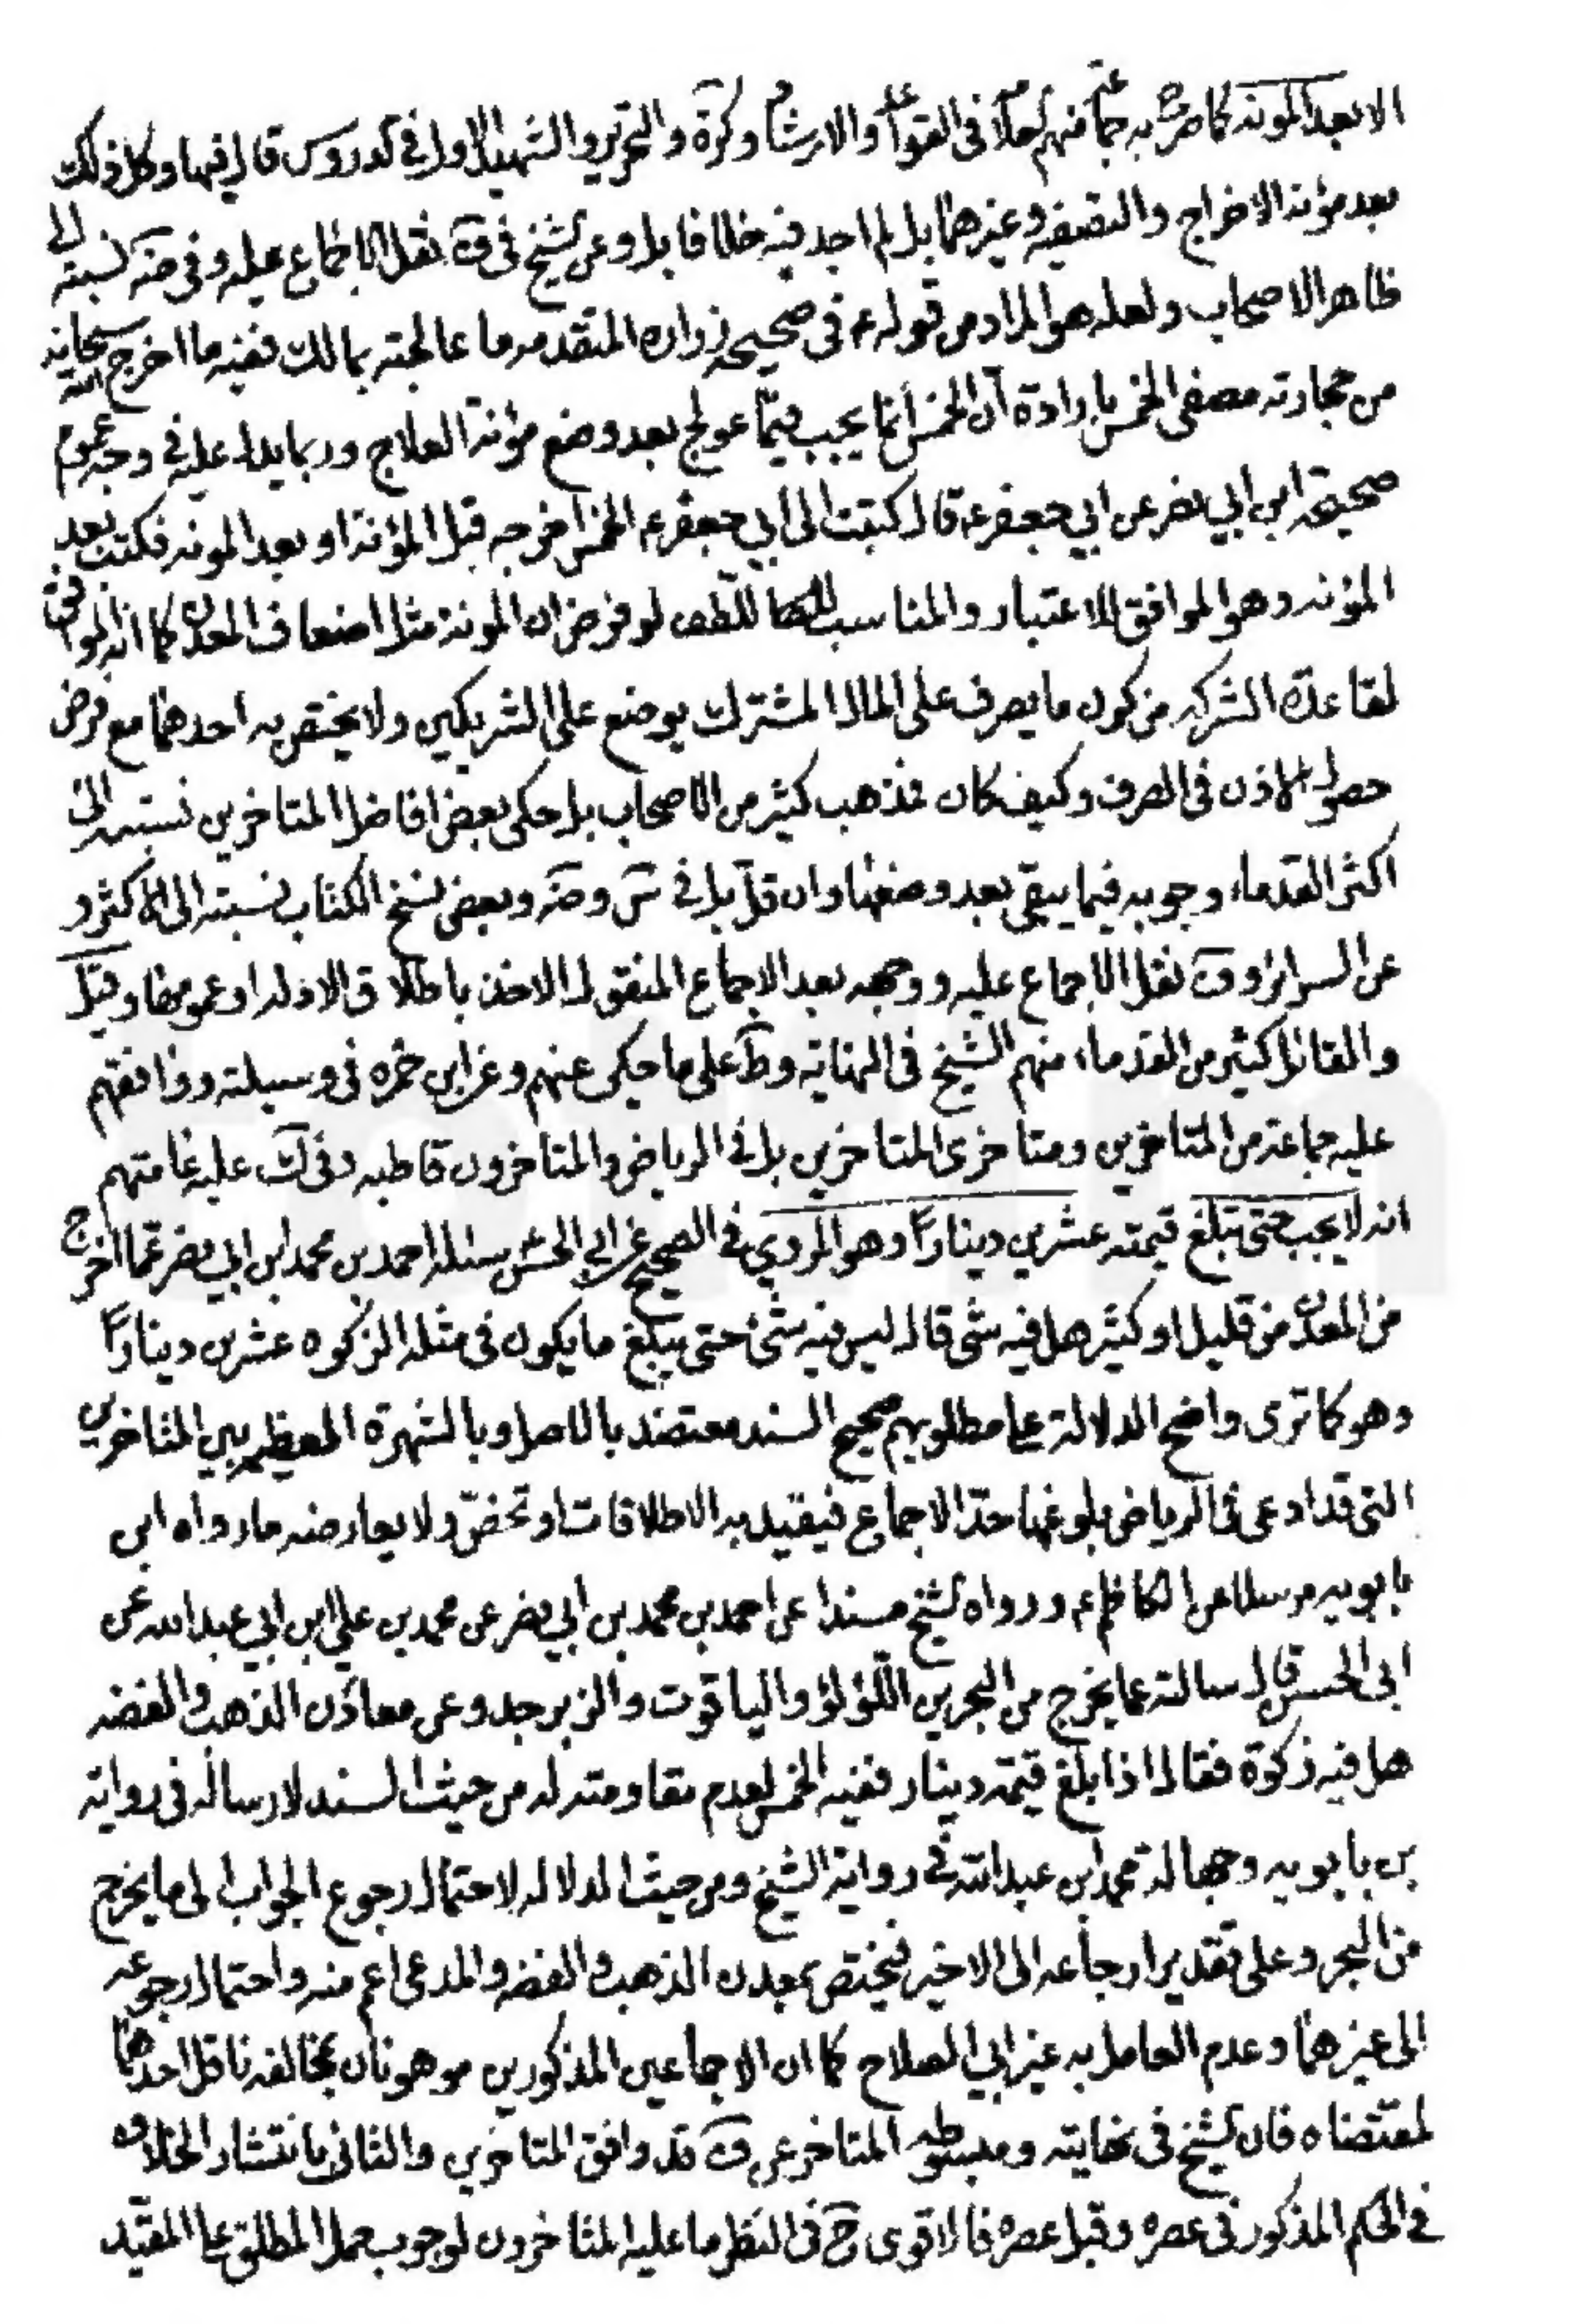 الا بعد المونه كما صرح به جماعة منهم العلامة في القواعد والارشاد وكرة والتحرير والشهيد الاول في الدروس قال فيها وكل ذلك
بعد مؤنة الاخراج والتصفيه وغيرهما بل لم اجد فيه خلافا بل وعن الشيخ في ف نقل الاجماع عليه وفي ضه نسبته الى
ظاهر الاصحاب ولعله هو المراد من قوله ع في صحيحه زراره المتقدمه ما عالجته بمالك ففيه ما اخرج الله سبحانه
من حجارته مصفى الخمس بارادة ان الخمس انما يجب فيما عولج بعد وضع مؤنة العلاج وربما يدل عليه في وجه عموم
صحيحة ابن ابي نصر عن ابي جعفر ع قال كتبت الى ابي جعفر ع الخمس اخرجه قبل المؤنة او بعد المونه فكتب بعد
المؤنه وهو الموافق للاعتبار والمناسب للطف لو فرض ان المونة مثل اضعاف المعدن كما انه الموافق
لقاعدة الشركه من كون ما يصرف على المال المشترك يوضع على الشريكين ولا يختص به احدهما مع فرض
حصول الاذن في الصرف وكيف كان فذهب كثير من الاصحاب بل حكى بعض افاضل المتاخرين نسبته الى
اكثر القدماء وجوبه فيما يبقى بعد وضعها وان قل بل في س وضه وبعض نسخ الكتاب نسبته الى الاكثر و
عن السرائر وف نقل الاجماع عليه ووجهه بعد الاجماع المنقول الاخذ باطلاق الادله او عمومها وقيل
والقائل كثير من القدماء منهم الشيخ في النهاية وط على ما حكى عنهم وعن ابن حمزه في وسيلته ووافقهم
عليه جماعة من المتاخرين ومتاخرى المتاخرين بل في الرياض والمتاخرون قاطبه وفي ك عليه عامتهم
انه لا يجب حتى تبلغ قيمته عشرين دينارا وهو المروي في الصحيح عن ابي الحسن سئله احمد بن محمد ابن ابي نصر عما اخرج
من المعدن من قليل او كثير هل فيه شى قال ليس فيه شئ حتى يبلغ ما يكون في مثله الزكوه عشرين دينارا
وهو كما ترى واضح الدلالة على مطلوبهم صحيح السند معتضد بالاصل وبالشهرة العظيمه بين المتاخرين
التي قد ادعى في الرياض بلوغها حد الاجماع فيقيد به الاطلاقات او تخص ولا يعارضه ما رواه ابن
بابويه مرسلا عن الكاظم ع ورواه الشيخ مسندا عن احمد بن محمد بن ابي نصر عن محمد بن علي ابن ابي عبد الله عن
ابي الحسن قال سالته عما يخرج من البحر من اللؤلؤ والياقوت والزبرجد وعن معادن الذهب والفضه
هل فيه زكوة فقال اذا بلغ قيمته دينار ففيه الخمس لعدم مقاومته له من حيث السند لارساله في رواية
بن بابويه وجهالة محمد ابن عبد الله في رواية الشيخ ومن حيث الدلاله لاحتمال رجوع الجواب الى ما يخرج
من البحر وعلى تقدير ارجاعه الى الاخير فيختص بمعدن الذهب والفضه والمدعى اعم منه واحتمال رجوعه
الى غيرهما وعدم العامل به غير ابي الصلاح كما ان الاجماعين المذكورين موهونان بمخالفه ناقل احدهما
لمقتضاه فان الشيخ في نهايته ومبسوطه المتاخر عن ف قد وافق المتاخرين والثاني بانتشار الخلاف
في الحكم المذكور في عصره وقبل عصره فالاقوى ح في النظر ما عليه المتاخرون لوجوب حمل المطلق على المقيد